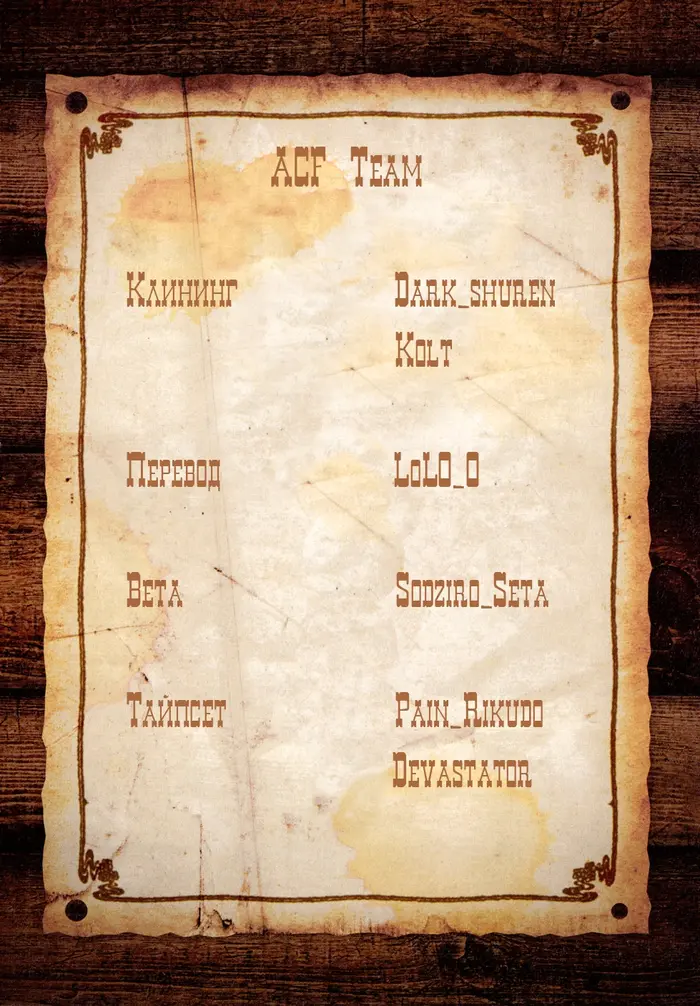 ACF Team
Клининг Dark_shuren
Kolt
Перевод LoLO_O
Бета Sodziro_Seta
Тайпсет Pain_Rikudo
Devastator